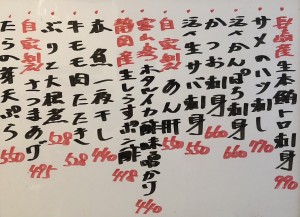 長崎産生本鮪トロ刺身 990
サメのハツ刺し 770
活〆かんぱち刺身 660
かつお刺身 660
活〆生サバ刺身 550
自家製あん肝 550
富山産ホタルイカ酢味噌がけ 440
静岡産生しらすポン酢 418
赤魚一夜干し 440
牛モモ肉たたき 528
ぶりと大根煮 528
自家製さつまあげ 495
たらの芽天ぷら 550